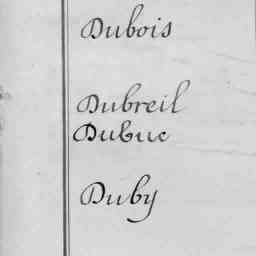 Dubois
Dubreil
Dubuc
Duby